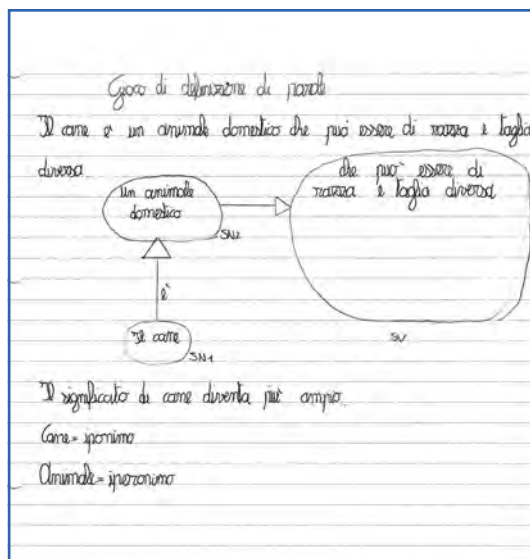 Gioco di definizione di parole
Il cane è un animale domestico che può essere di razza e taglia
diversa.
che può essere di
razza e taglia diversa
un animale
domestico
SN2
è
Il cane
SN1
SV
Il significato di cane diventa più ampio.
Cane = iponimo
Animale = iperonimo